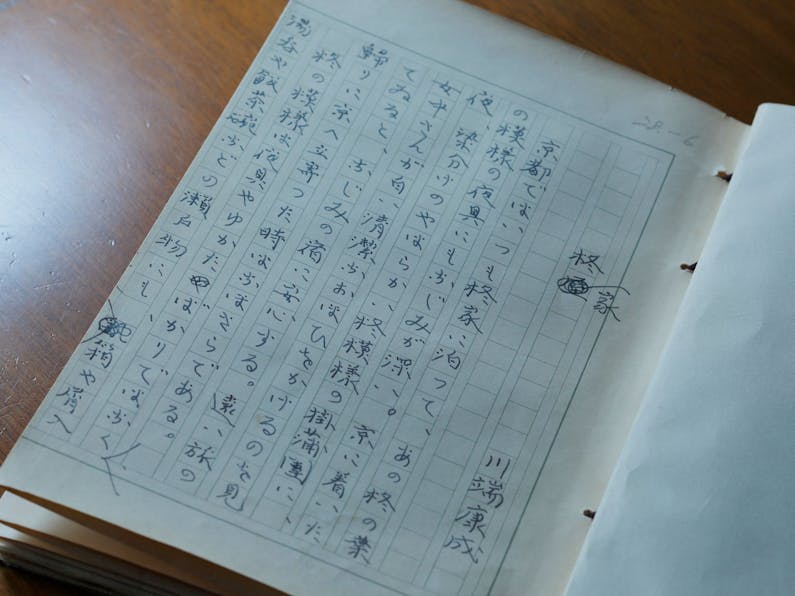 28-6
柊家
川端康成
京都ではいつも柊家に泊つて、あの柊の葉
の模様の夜具にもなじみが深い。京に着いた
夜、染分けのやはらかい柊模様の掛蒲團に、
女中さんが白い清潔なおほひをかけるのを見
てゐると、なじみの宿に安心する。遠い旅の
歸りに京へ立寄つた時はなほさらである。
柊の模様は夜具やゆかたばかりではなく
湯呑や飯茶碗などの瀬戸物にも、箱や屑入